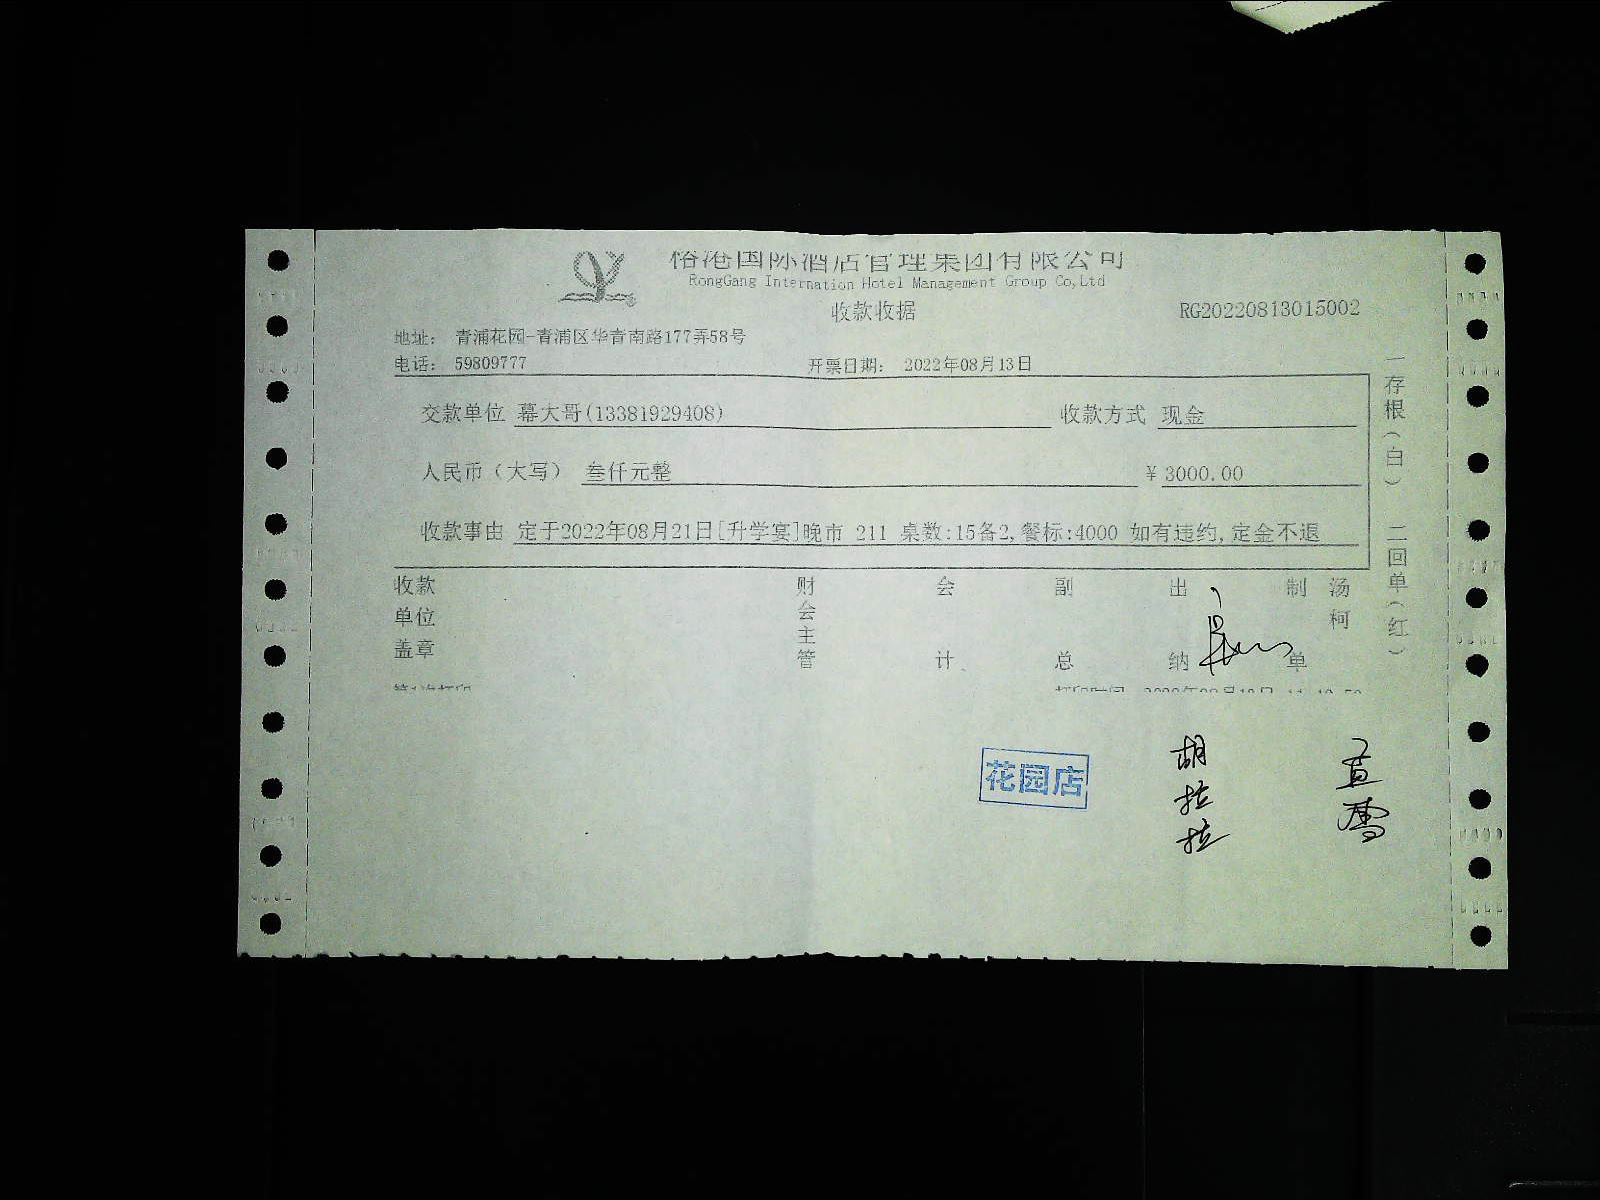 港国际酒店管理集团有限公司
RongGang Internation Hotel Management Group Co,Ltd
收款收据
RG20220813015002
地址: 青浦花园-青浦区华青南路177弄58号
电话: 59809777
开票日期: 2022年08月13日
交款单位 幕大哥(13381929408) 收款方式 现金
人民币(大写) 叁仟元整 ¥3000.00
收款事由 定于2022年08月21日[升学宴]晚市 211 桌数:15备2,餐标:4000 如有违约,定金不退
收款单位盖章 财会主管 会计 副总 出纳 制单 汤柯
一存根(白) 二回单(红)
花园店
胡拉拉